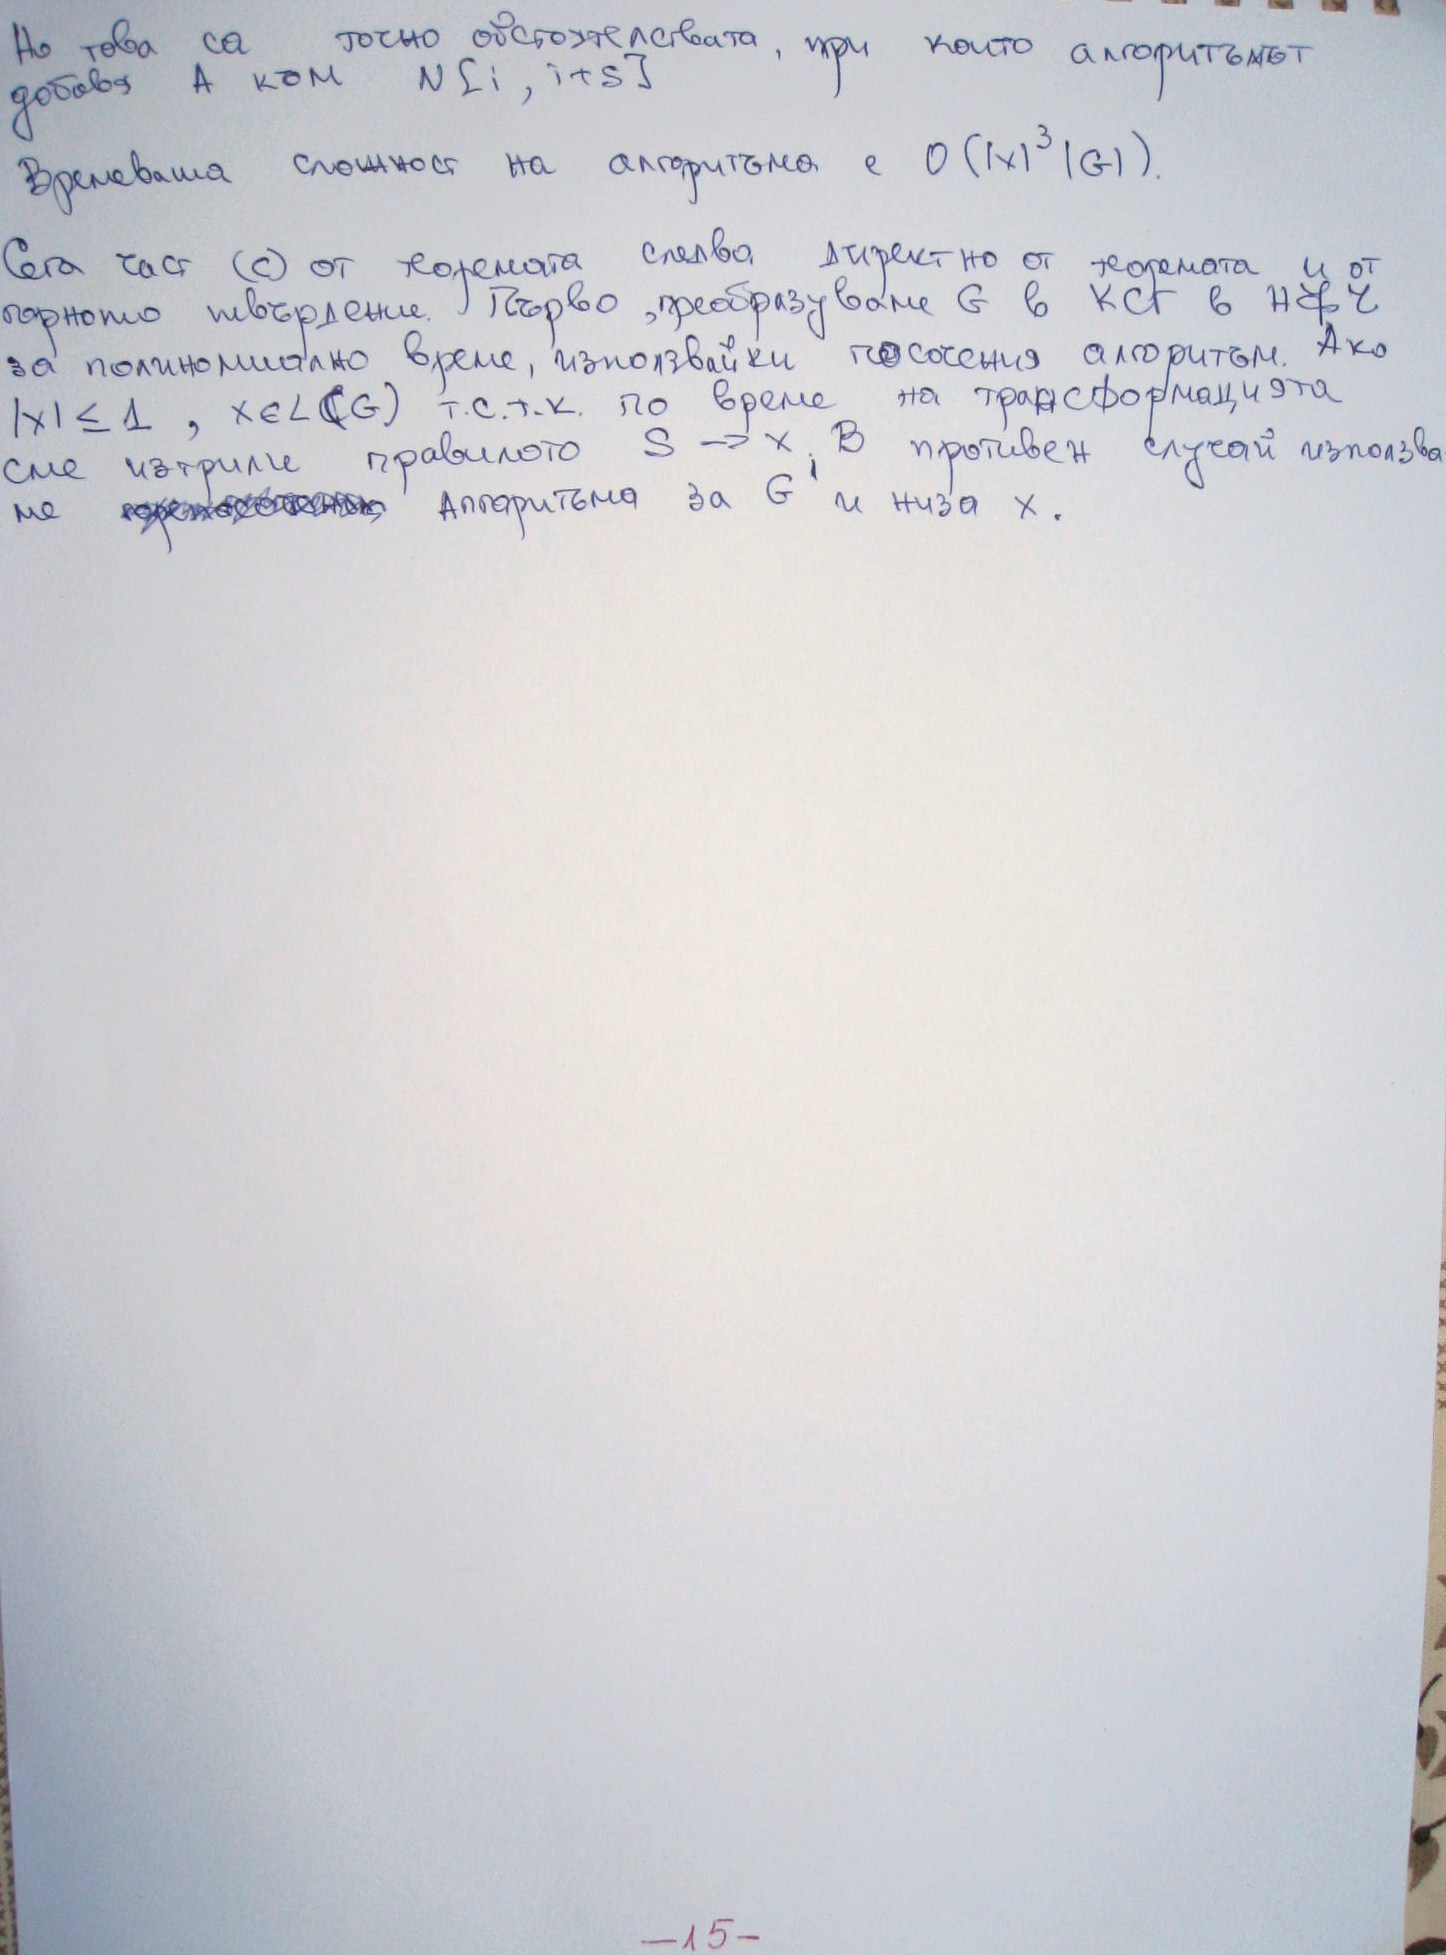 Но това са точно обстоятелствата, при които алгоритъмът
добавя А към N[i, i+s]
Времевата сложност на алгоритъма е O(|x|³|G|).
Сега част (c) от теоремата следва директно от теоремата и от
горното твърдение. Първо, преобразуваме G в КСГ в НФЧ
за полиномиално време, използвайки посочения алгоритъм. Ако
|x| ≤ 1, x∈L(G) т.с.т.к. по време на трансформацията
сме изтрили правилото S → x. В противен случай използва
ме алгоритъма за G' и низа x.
—15—